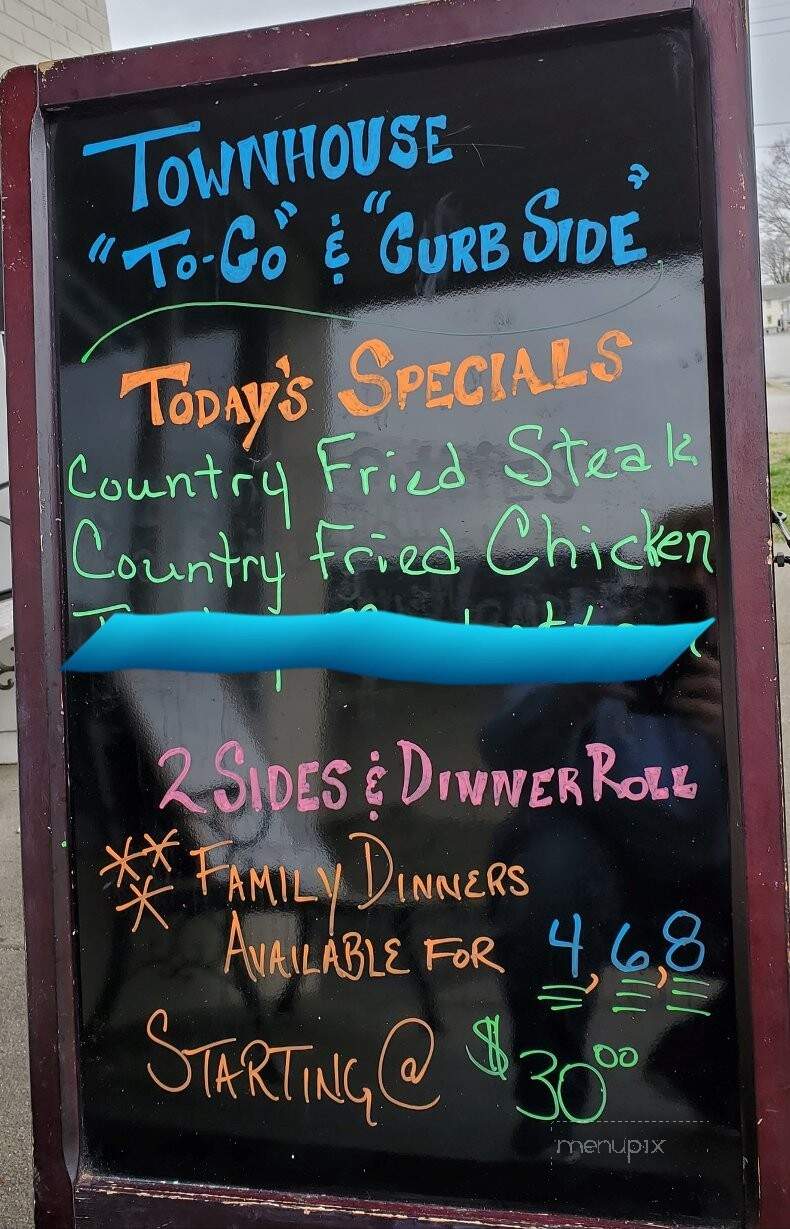 TOWNHOUSE
"TO-GO" & "CURB SIDE"
TODAY'S SPECIALS
Country Fried Steak
Country Fried Chicken
2 SIDES & DINNER ROLL
*** FAMILY DINNERS
AVAILABLE FOR 4, 6, 8
STARTING @ $30.00
menupix